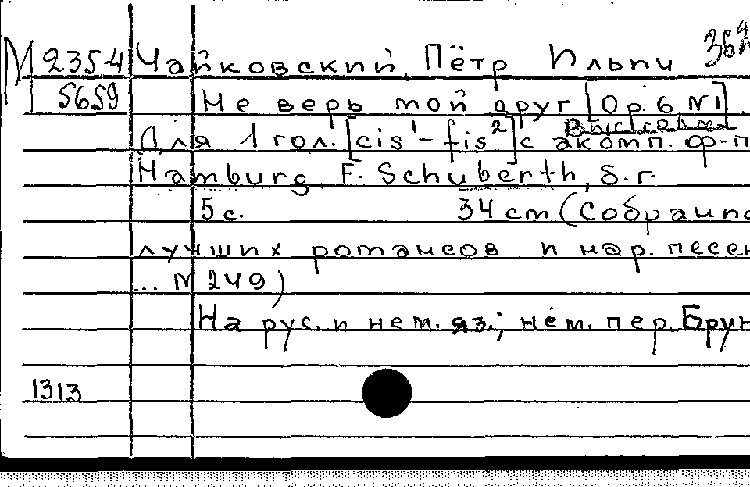 М 2354 Чайковский, Пётр Ильич
5659 Не верь мой друг [Ор. 6 №1]
Для 1 гол. [cis¹-fis²] с акомп. ф-п
Hamburg, F. Schuberth, б.г.
5 с. 34 cm (Собрание
лучших романсов и нар. песен
... № 249)
На рус. и нем. яз.; нем. пер. Брун
1313